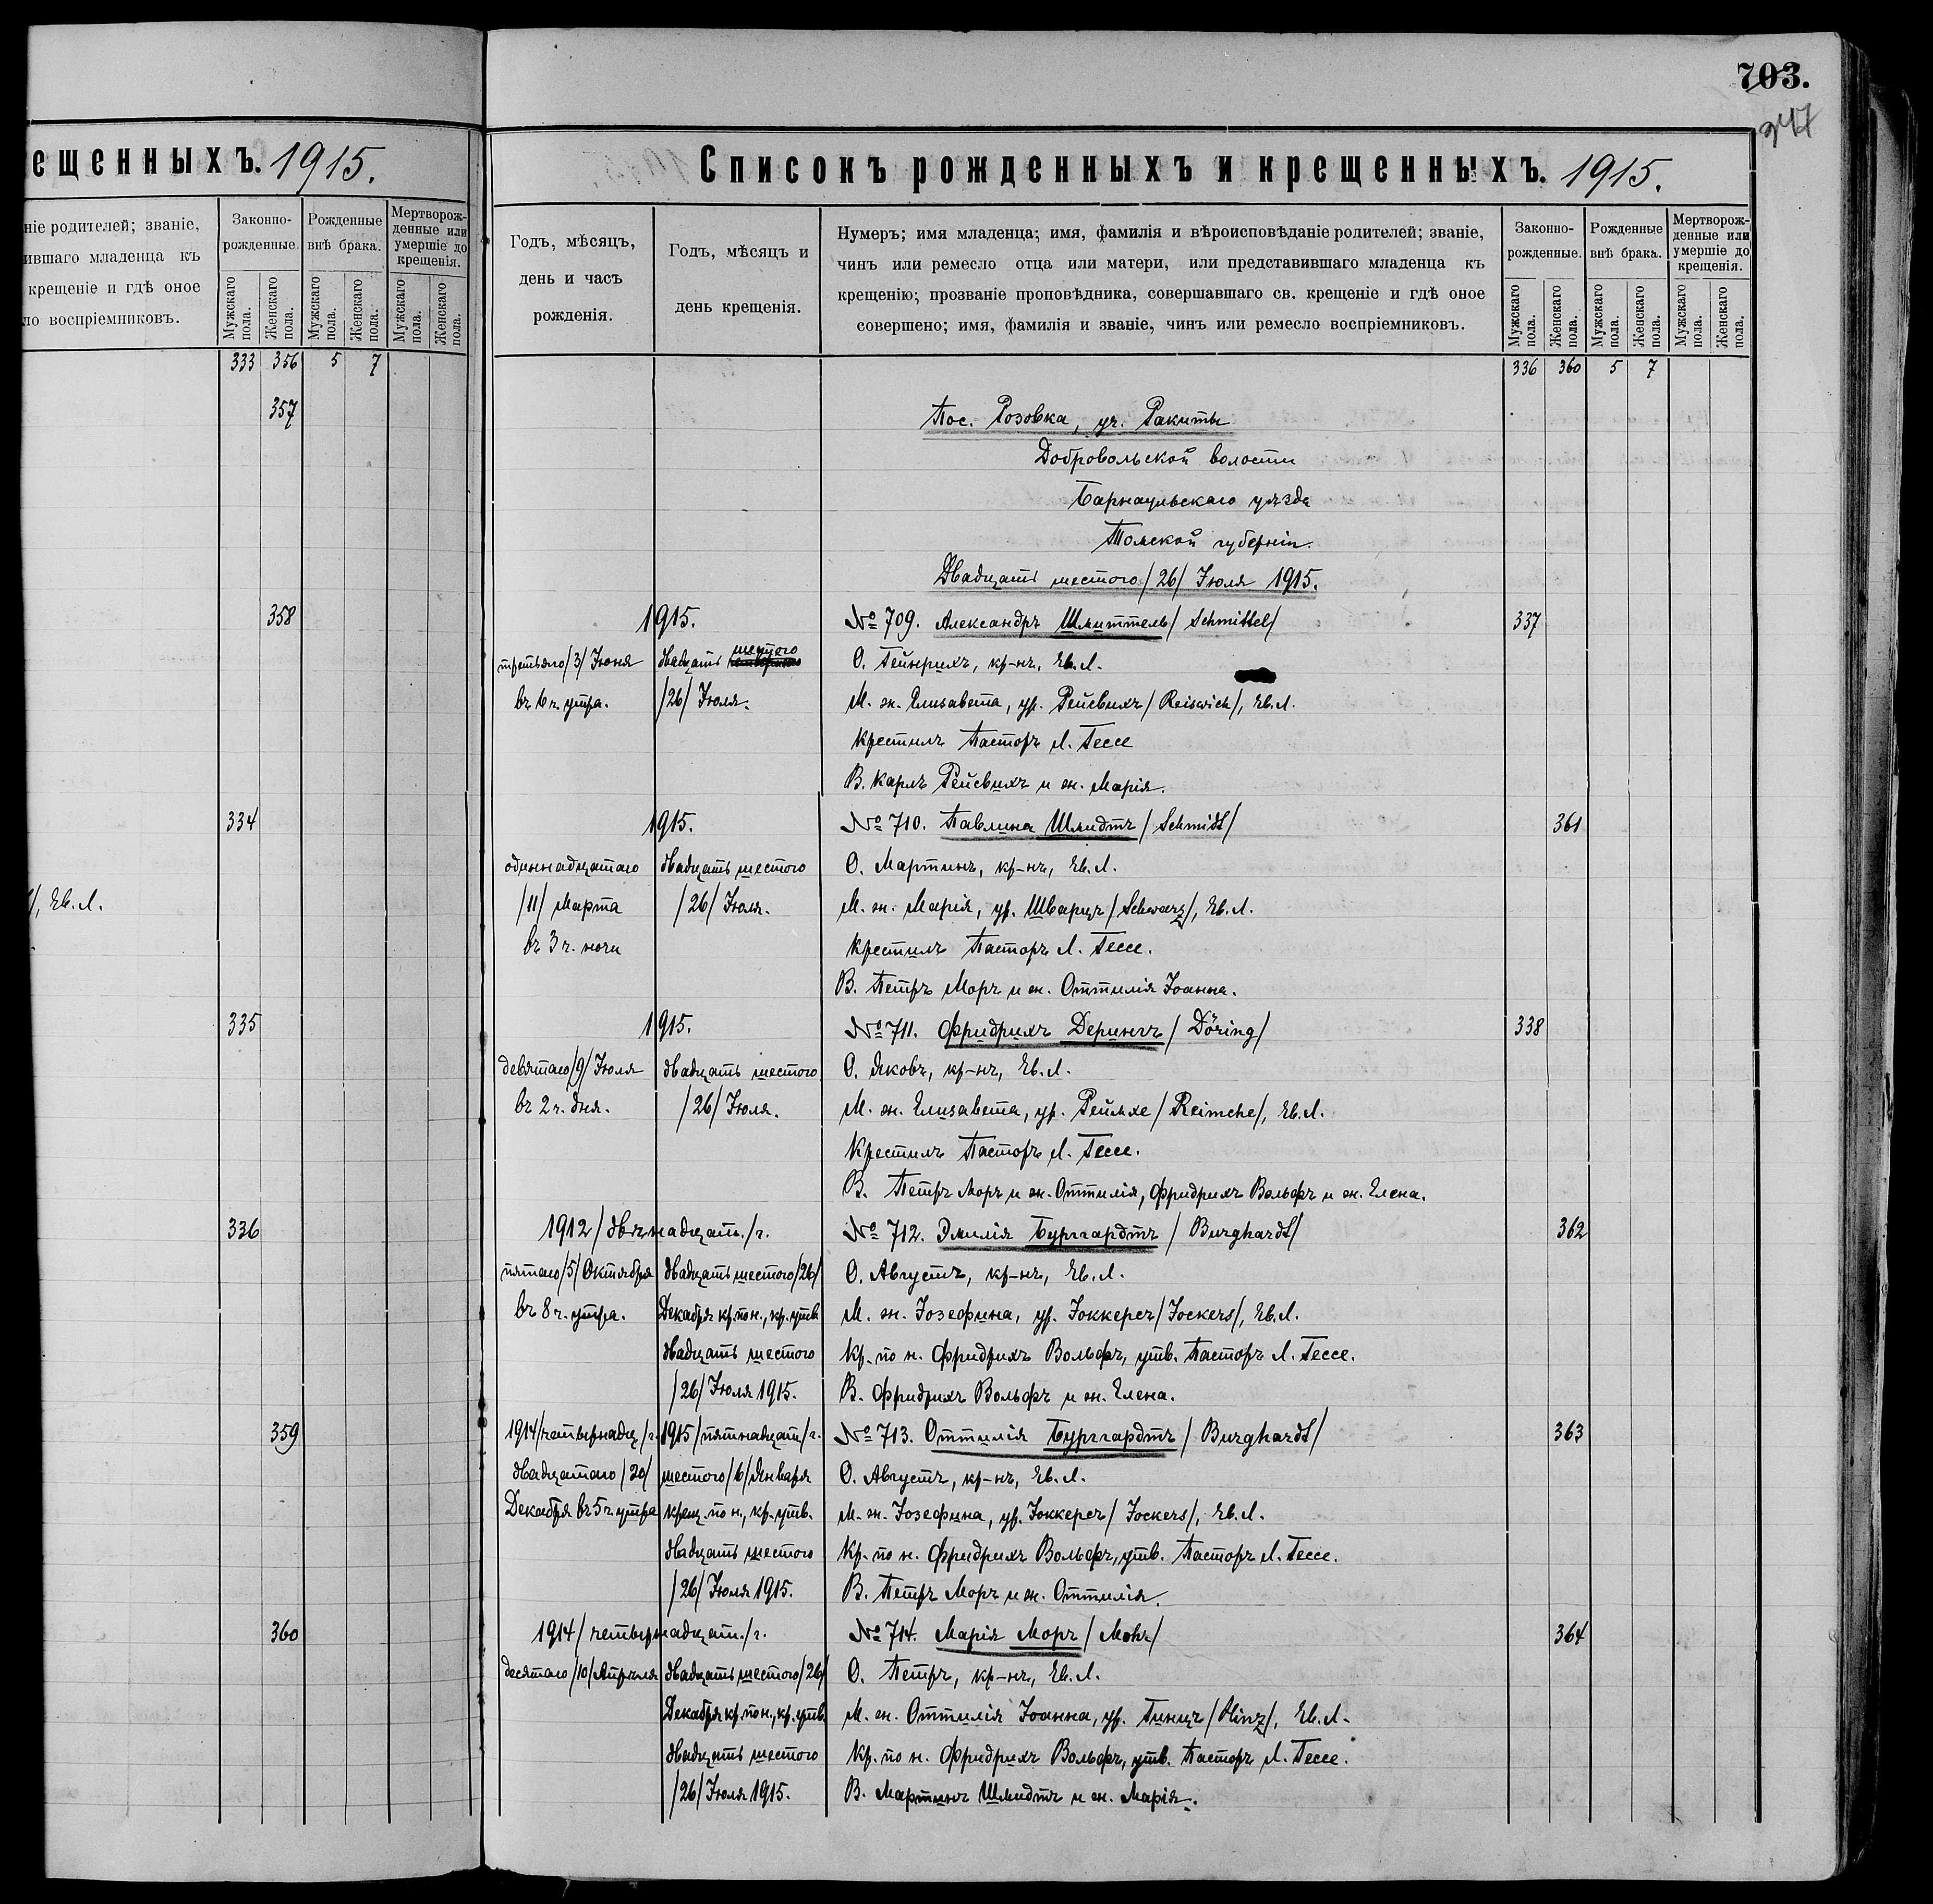 ещенныхъ. 1915.
ніе родителей; званіе,
ившаго младенца къ
крещеніе и гдѣ оное
ло воспріемниковъ.
Законно-
рожденные.
Рожденные
внѣ брака.
Мертворож-
денные или
умершіе до
крещенія.
Мужскаго пола.
Женскаго пола.
Мужскаго пола.
Женскаго пола.
Мужскаго пола.
Женскаго пола.
333 356 5 7
357
358
334
/, Ев. Л.
335
336
359
360
703.
247
Списокъ рожденныхъ и крещенныхъ. 1915.
Годъ, мѣсяцъ,
день и часъ
рожденія.
Годъ, мѣсяцъ и
день крещенія.
Нумеръ; имя младенца; имя, фамилія и вѣроисповѣданіе родителей; званіе,
чинъ или ремесло отца или матери, или представившаго младенца къ
крещенію; прозваніе проповѣдника, совершавшаго св. крещеніе и гдѣ оное
совершено; имя, фамилія и званіе, чинъ или ремесло воспріемниковъ.
Законно-
рожденные.
Рожденные
внѣ брака.
Мертворож-
денные или
умершіе до
крещенія.
Мужскаго пола.
Женскаго пола.
Мужскаго пола.
Женскаго пола.
Мужскаго пола.
Женскаго пола.
336 360 5 7
Пос. Розовка, уч. Ракиты
Добровольской волости
Барнаульскаго уѣзда
Томской губерніи.
Двадцать шестого /26/ Іюля 1915.
1915. № 709. Александръ Шмиттель /Schmittel/ 337
третьяго /3/ Іюня двадцать шестого О. Гейнрихъ, кр-нъ, Ев. Л.
въ 6 ч. утра. /26/ Іюля. М. ж. Елизавета, ур. Рейсвихъ /Reiswich/, Ев. Л.
Крестилъ Пасторъ Л. Гессе
В. Карлъ Рейсвихъ и ж. Марія.
1915. № 710. Павлина Шмидтъ /Schmidt/ 361
одиннадцатаго двадцать шестого О. Мартинъ, кр-нъ, Ев. Л.
/11/ Марта /26/ Іюля. М. ж. Марія, ур. Шварцъ /Schwarz/, Ев. Л.
въ 3 ч. ночи Крестилъ Пасторъ Л. Гессе.
В. Петръ Моръ и ж. Оттилія Іоанна.
1915. № 711. Фридрихъ Дерингъ /Döring/ 338
девятаго /9/ Іюля двадцать шестого О. Яковъ, кр-нъ, Ев. Л.
въ 2 ч. дня. /26/ Іюля. М. ж. Елизавета, ур. Реймхе /Reimche/, Ев. Л.
Крестилъ Пасторъ Л. Гессе.
В. Петръ Моръ и ж. Оттилія, Фридрихъ Вольфъ и ж. Елена.
1912 /двѣнадцат./ г. № 712. Эмилія Бургардтъ /Burghardt/ 362
пятаго /5/ Октября двадцать шестого /26/ О. Августъ, кр-нъ, Ев. Л.
въ 8 ч. утра. Декабря кр. по н., кр. утв. М. ж. Іозефина, ур. Іоккерсъ /Jockers/, Ев. Л.
двадцать шестого Кр. по н. Фридрихъ Вольфъ, утв. Пасторъ Л. Гессе.
/26/ Іюля 1915. В. Фридрихъ Вольфъ и ж. Елена.
1914 /четырнадц./ г. 1915 /пятнадцат/ г. № 713. Оттилія Бургардтъ /Burghardt/ 363
двадцатаго /20/ шестого /6/ Января О. Августъ, кр-нъ, Ев. Л.
Декабря въ 5 ч. утра крещ. по н., кр. утв. М. ж. Іозефина, ур. Іоккерсъ /Jockers/, Ев. Л.
двадцать шестого Кр. по н. Фридрихъ Вольфъ, утв. Пасторъ Л. Гессе.
/26/ Іюля 1915. В. Петръ Моръ и ж. Оттилія.
1914 /четырнадцат./ г. № 714. Марія Моръ /Mohr/ 364
десятаго /10/ Апрѣля двадцать шестого /26/ О. Петръ, кр-нъ, Ев. Л.
Декабря кр. по н., кр. утв. М. ж. Оттилія Іоанна, ур. Гинцъ /Hinz/, Ев. Л.
двадцать шестого Кр. по н. Фридрихъ Вольфъ, утв. Пасторъ Л. Гессе.
/26/ Іюля 1915. В. Мартинъ Шмидтъ и ж. Марія.